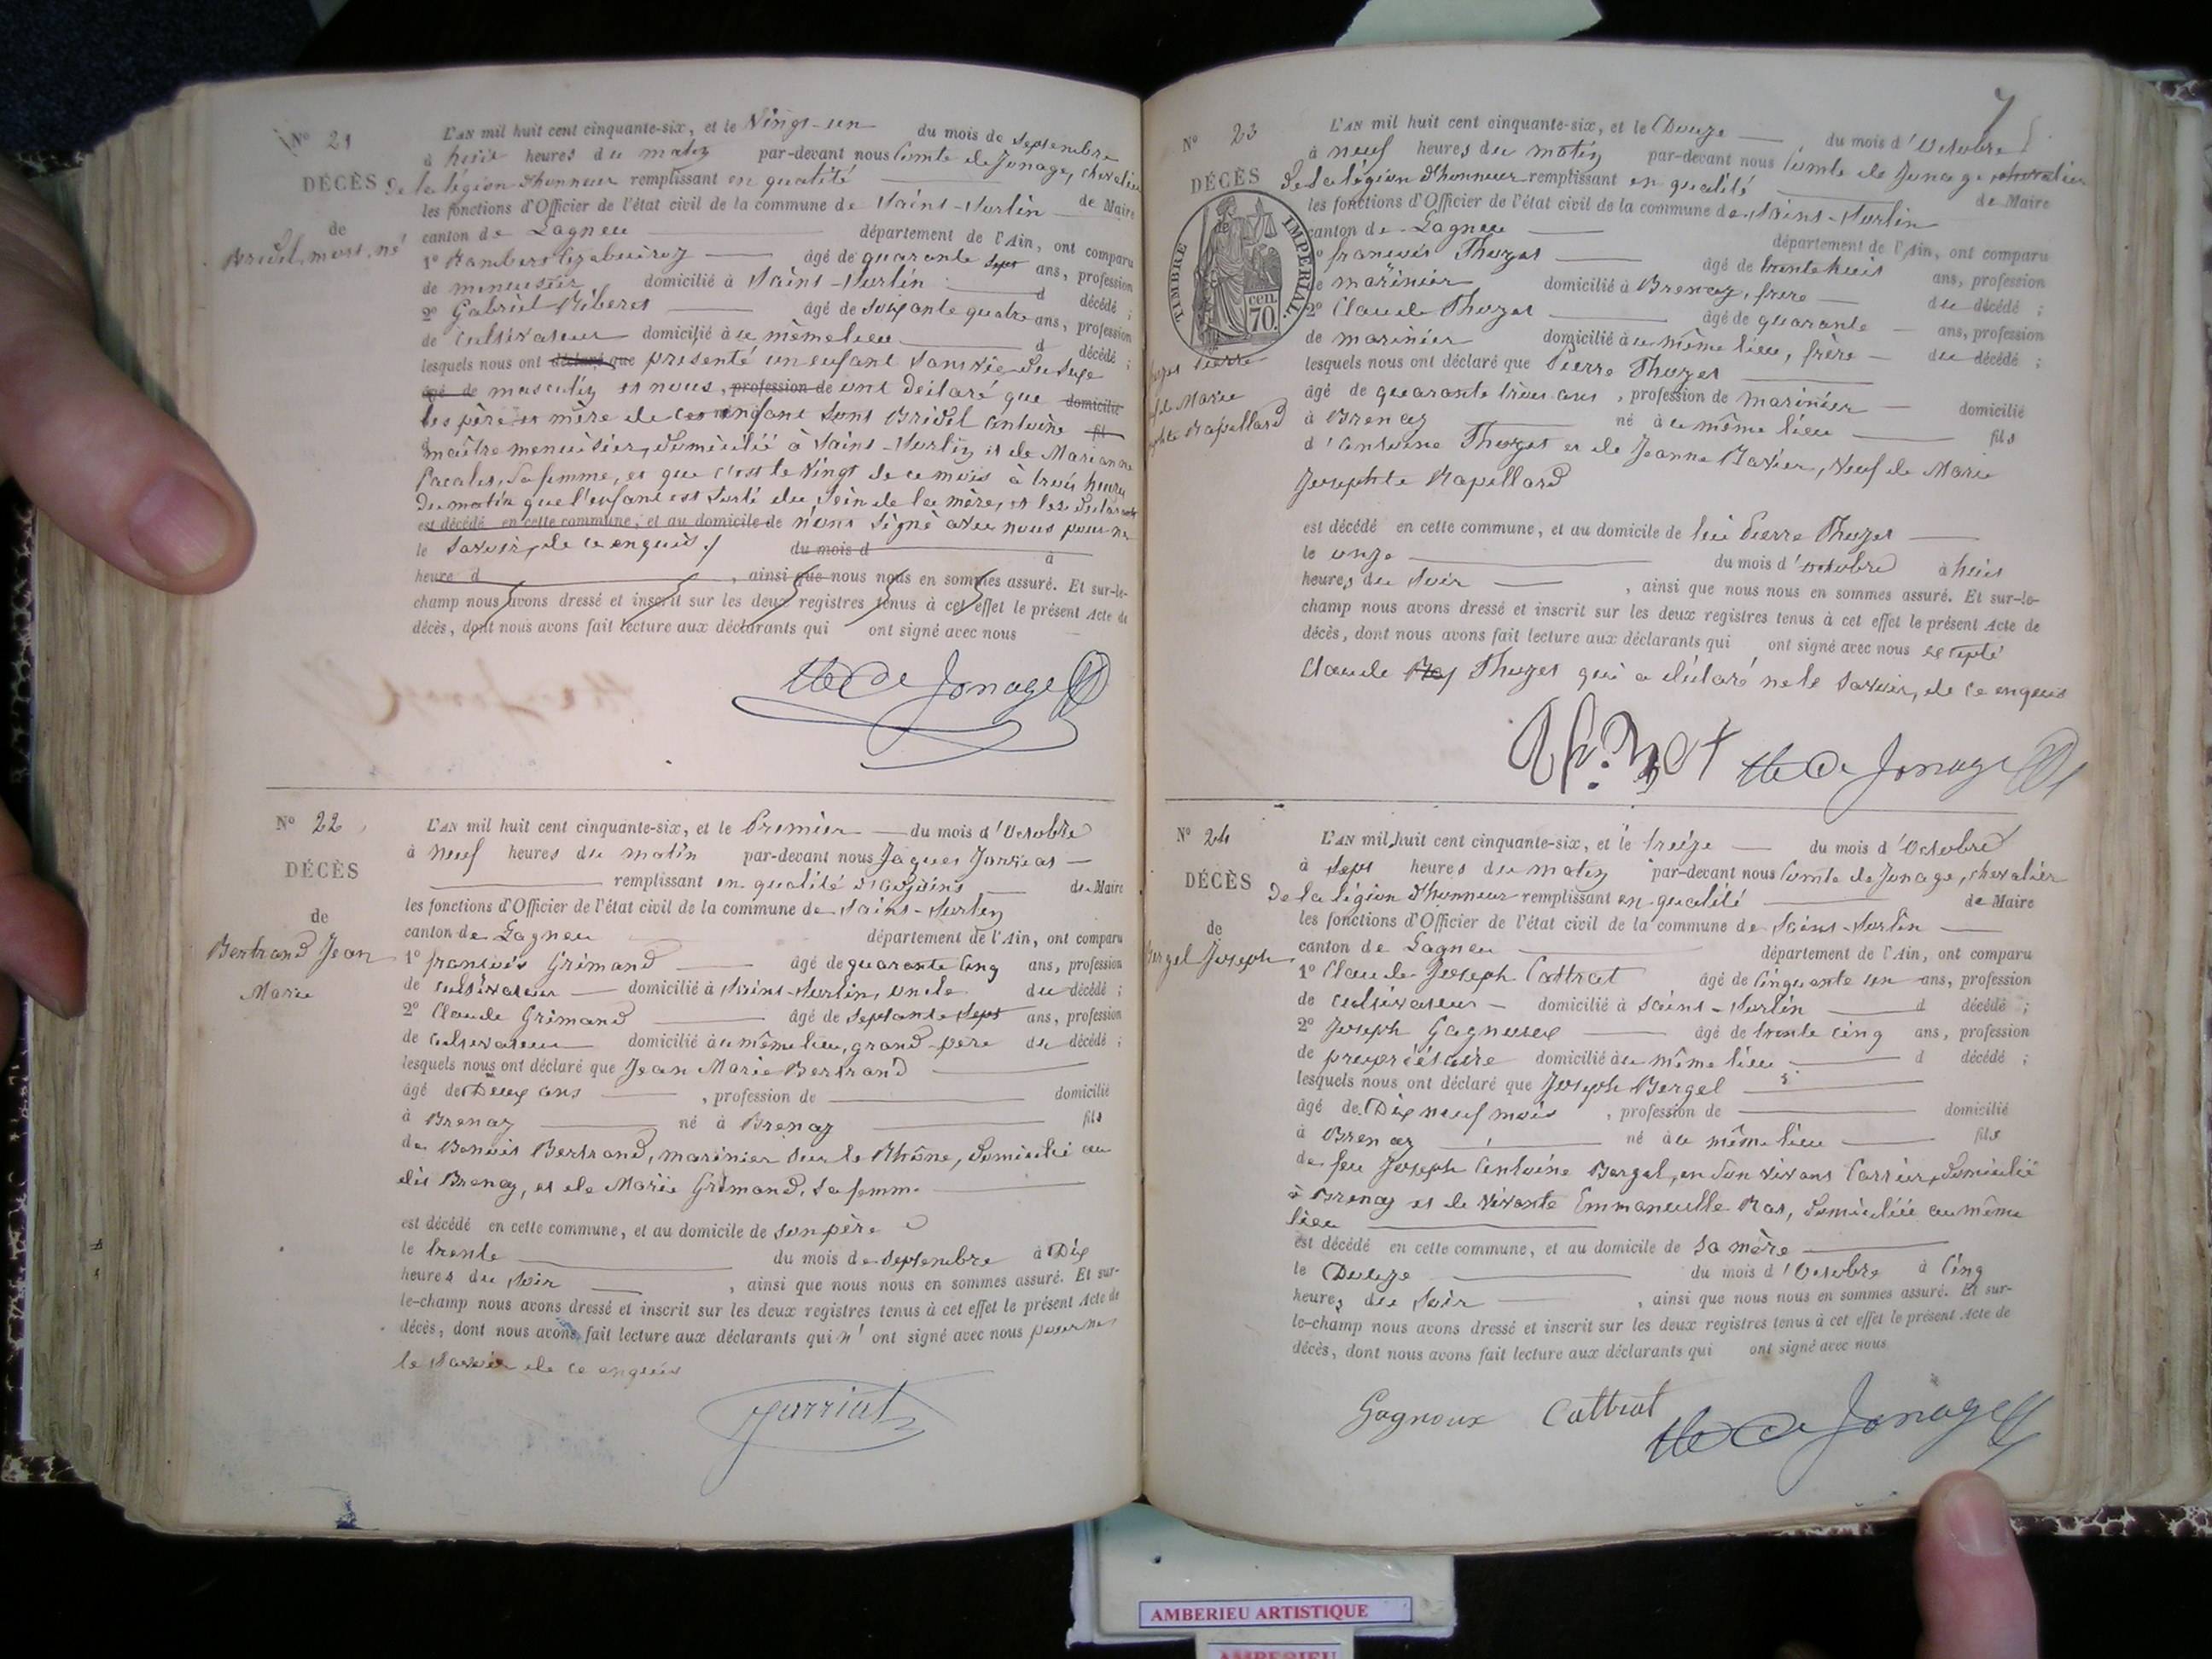 N° 21
DÉCÈS
de
Bridel, mort né
L'AN mil huit cent cinquante-six, et le Vingt-un du mois de Septembre
à huit heures du matin par-devant nous Comte de Jonage, chevalier
de la légion d'honneur remplissant en qualité de Maire
les fonctions d'Officier de l'état civil de la commune de Saint-Surlin
canton de Lagneu département de l'Ain, ont comparu
1° Rambert âgé de quarante sept ans, profession
de menuisier domicilié à Saint-Surlin d décédé ;
2° Gabriel Riberet âgé de soixante quatre ans, profession
de cultivateur domicilié au même lieu d décédé ;
lesquels nous ont déclaré que présenté un enfant sans vie du sexe
âgé de masculin et nous, profession de ont déclaré que domicilié
les père et mère de cet enfant sont Bridel Antoine fil
maître menuisier, domicilié à Saint-Surlin et de Marianne
Pacalet, sa femme, et que c'est le vingt de ce mois à trois heures
du matin que l'enfant est sorti du sein de la mère, et les déclarants
est décédé en cette commune, et au domicile de n'ont signé avec nous pour ne
le savoir, de ce enquis ./ du mois d à
heure d , ainsi que nous nous en sommes assuré. Et sur-le-
champ nous avons dressé et inscrit sur les deux registres tenus à cet effet le présent Acte de
décès, dont nous avons fait lecture aux déclarants qui ont signé avec nous
de Jonage
N° 22
DÉCÈS
de
Bertrand Jean
Marie
L'AN mil huit cent cinquante-six, et le Premier du mois d'Octobre
à neuf heures du matin par-devant nous Jaques Jarriat
remplissant en qualité d'adjoint de Maire
les fonctions d'Officier de l'état civil de la commune de Saint-Surlin
canton de Lagneu département de l'Ain, ont comparu
1° françois Grimand âgé de quarante cinq ans, profession
de cultivateur domicilié à Saint-Surlin, oncle du décédé ;
2° Claude Grimand âgé de septante sept ans, profession
de cultivateur domicilié au même lieu, grand-père du décédé ;
lesquels nous ont déclaré que Jean Marie Bertrand
âgé de Deux ans , profession de domicilié
à Brenaz né à Brenaz fils
de Benoit Bertrand, marinier sur le Rhône, domicilié au
dit Brenaz, et de Marie Grimand, sa femme
est décédé en cette commune, et au domicile de son père
le trente du mois de septembre à Dix
heures du soir , ainsi que nous nous en sommes assuré. Et sur-
le-champ nous avons dressé et inscrit sur les deux registres tenus à cet effet le présent Acte de
décès, dont nous avons fait lecture aux déclarants qui n' ont signé avec nous pour ne
le savoir de ce enquis
Jarriat
7
N° 23
DÉCÈS
de
TIMBRE IMPERIAL.
70. cen.
Thozet Pierre
de Marie
Josephte Rapillard
L'AN mil huit cent cinquante-six, et le Douze du mois d'Octobre
à neuf heures du matin par-devant nous Comte de Jonage, chevalier
de la légion d'honneur remplissant en qualité de Maire
les fonctions d'Officier de l'état civil de la commune de Saint-Surlin
canton de Lagneu département de l'Ain, ont comparu
1° françois Thozet âgé de trente huit ans, profession
de marinier domicilié à Brenaz, frère du décédé ;
2° Claude Thozet âgé de quarante ans, profession
de marinier domicilié au même lieu, frère du décédé ;
lesquels nous ont déclaré que Pierre Thozet
âgé de quarante trois ans , profession de marinier domicilié
à Brenaz né au même lieu fils
d'Antoine Thozet et de Jeanne Bavier, veuf de Marie
Josephte Rapillard
est décédé en cette commune, et au domicile de lui Pierre Thozet
le onze du mois d'octobre à huit
heures du soir , ainsi que nous nous en sommes assuré. Et sur-le-
champ nous avons dressé et inscrit sur les deux registres tenus à cet effet le présent Acte de
décès, dont nous avons fait lecture aux déclarants qui ont signé avec nous excepté
Claude Thozet qui a déclaré ne le savoir, de ce enquis
de Jonage
N° 24
DÉCÈS
de
Bergel Joseph
L'AN mil huit cent cinquante-six, et le treize du mois d'Octobre
à sept heures du matin par-devant nous Comte de Jonage, chevalier
de la légion d'honneur remplissant en qualité de Maire
les fonctions d'Officier de l'état civil de la commune de Saint-Surlin
canton de Lagneu département de l'Ain, ont comparu
1° Claude Joseph Cattrat âgé de cinquante un ans, profession
de cultivateur domicilié à Saint-Surlin d décédé ;
2° Joseph Gagneux âgé de trente cinq ans, profession
de propriétaire domicilié au même lieu d décédé ;
lesquels nous ont déclaré que Joseph Bergel
âgé de Dix neuf mois , profession de domicilié
à Brenaz né au même lieu fils
de feu Joseph Antoine Bergel, en son vivant Carrier, domicilié
à Brenaz et de vivante Emmanuelle Ras, domiciliée au même
lieu
est décédé en cette commune, et au domicile de sa mère
le Douze du mois d'Octobre à Cinq
heures du soir , ainsi que nous nous en sommes assuré. Et sur-
le-champ nous avons dressé et inscrit sur les deux registres tenus à cet effet le présent Acte de
décès, dont nous avons fait lecture aux déclarants qui ont signé avec nous
Gagnoux Cattrat de Jonage
AMBERIEU ARTISTIQUE
AMBERIEU